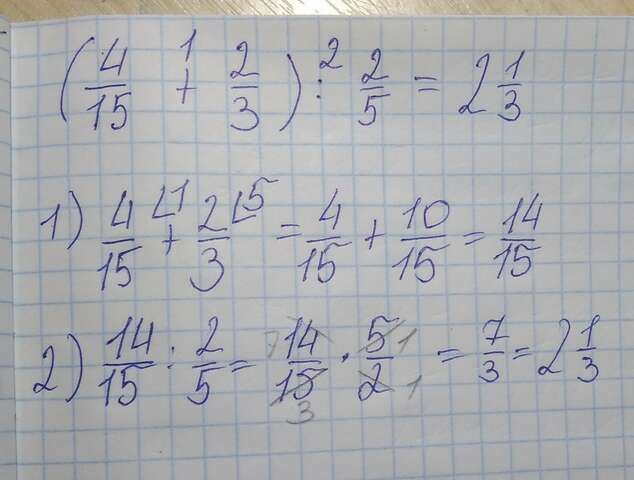 (4/15 +¹ 2/3) :² 2/5 = 2 1/3
1) 4/15 ⌊1 + 2/3 ⌊5 = 4/15 + 10/15 = 14/15
2) 14/15 : 2/5 = 7 14/15 3 · 5/2 1 1 = 7/3 = 2 1/3